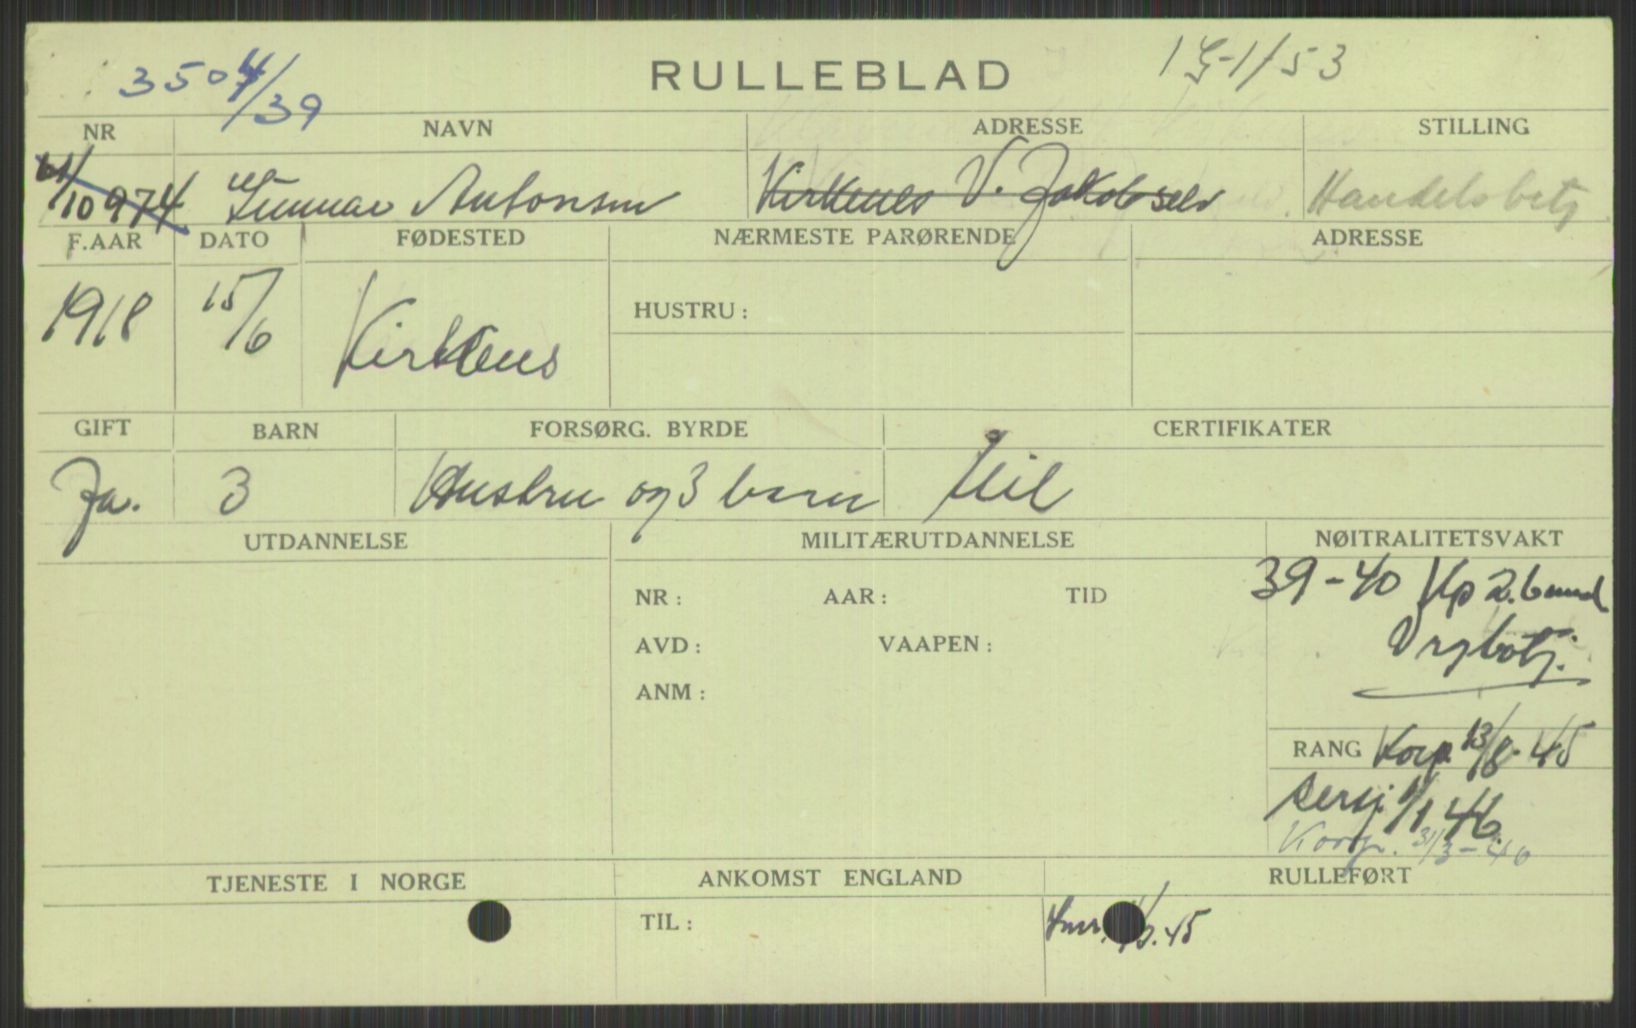 3504/39 RULLEBLAD
NR NAVN ADRESSE STILLING
61/10974 Gunnar Antonsen Kirkenes V. Jakobselv Handelsbetj
F.AAR DATO FØDESTED NÆRMESTE PARØRENDE ADRESSE
1918 15/6 Kirkenes
HUSTRU:
GIFT BARN FORSØRG. BYRDE CERTIFIKATER
Ja. 3 Hustru og 3 barn Mil
UTDANNELSE MILITÆRUTDANNELSE NØITRALITETSVAKT
39-40
NR: AAR: TID
AVD: VAAPEN:
ANM:
RANG Korp. 13/8-45
Sersj. 1/1 46.
Korp. 31/3-46
TJENESTE I NORGE ANKOMST ENGLAND RULLEFØRT
TIL: